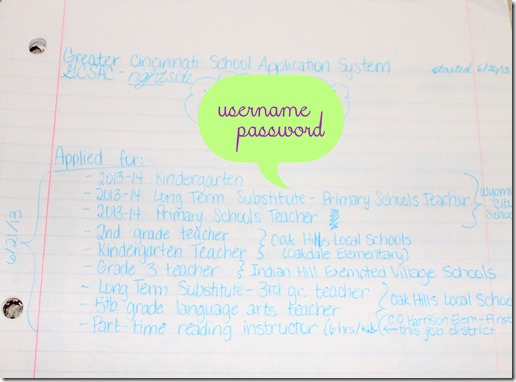 Greater Cincinnati School Application System
GCSAC - rightside
started 6/20/13
username
password
Applied for:
6/21/13
- 2013-14 Kindergarten
- 2013-14 Long Term Substitute - Primary Schools Teacher
- 2013-14 Primary Schools Teacher
City
- 2nd grade teacher
- Kindergarten Teacher
Oak Hills Local Schools
(Oakdale Elementary)
- Grade 3 teacher } Indian Hill Exempted Village Schools
- Long Term Substitute - 3rd gr. teacher
- 5th grade language arts teacher
Oak Hills Local School
- Part-time reading instructor (6 hrs/
CO Harrison Elem - First
this job district